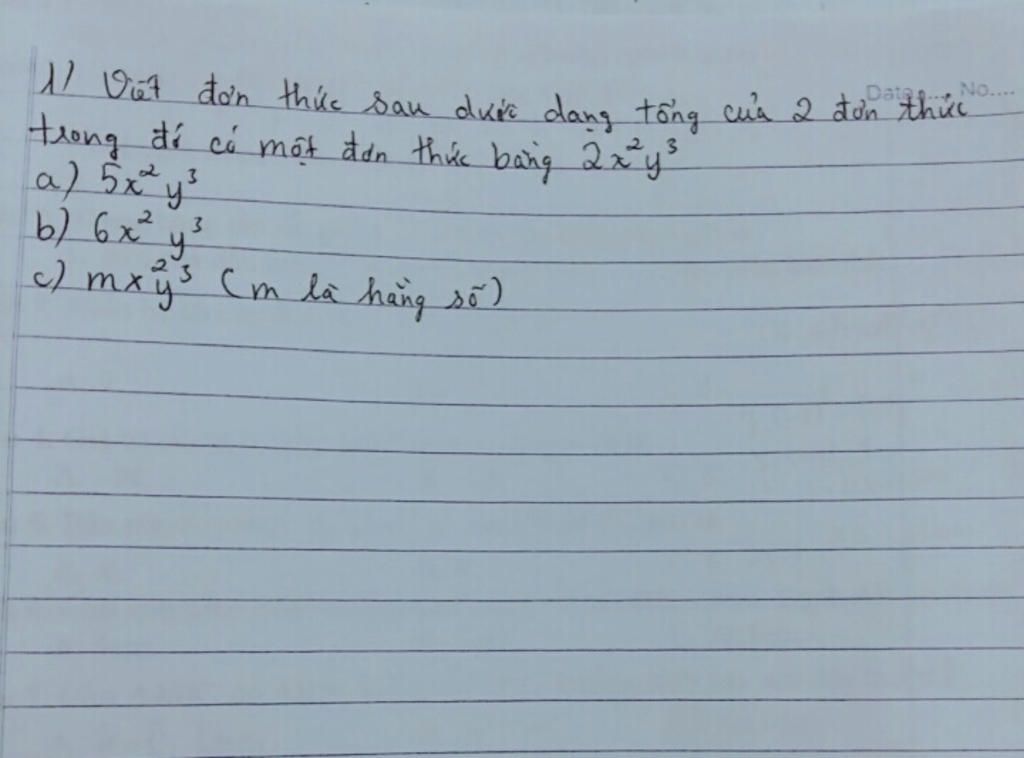 Date.... No....
1) Viết đơn thức sau dưới dạng tổng của 2 đơn thức
trong đó có một đơn thức bằng 2x²y³
a) 5x²y³
b) 6x²y³
c) mx²y³ (m là hằng số)